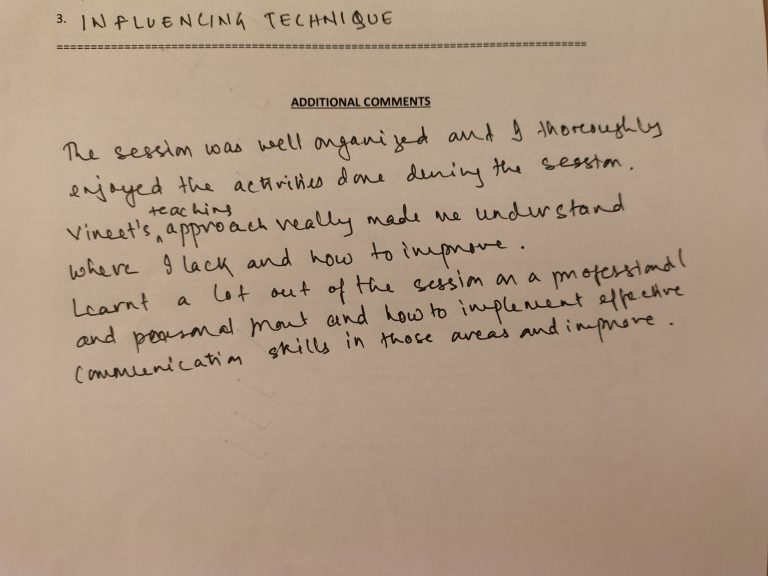 3. INFLUENCING TECHNIQUE
================================================================================
ADDITIONAL COMMENTS
The session was well organized and I thoroughly
enjoyed the activities done during the session.
teaching
Vineet's ^ approach really made me understand
where I lack and how to improve.
Learnt a lot out of the session on a professional
and personal front and how to implement effective
communication skills in those areas and improve.